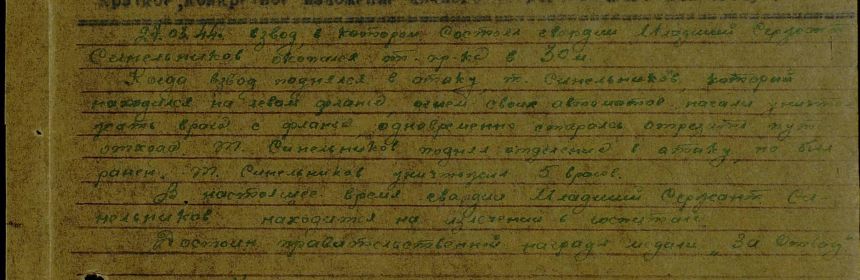 Краткое, конкретное изложение
27.03.44г. взвод, в котором состоял гвардии Младший Сержант
Синельников окопался от пр-ка в 30 м
Когда взвод поднялся в атаку, т. Синельников, который
находился на левом фланге, огнем своих автоматов начали уничто
жать врага с фланга, одновременно старались отрезать путь
отхода. Т. Синельников поднял отделение в атаку, но был
ранен. Т. Синельников уничтожил 5 врагов.
В настоящее время гвардии Младший Сержант Си-
нельников находится на излечении в госпитале
Достоин правительственной награды медали „За Отвагу"